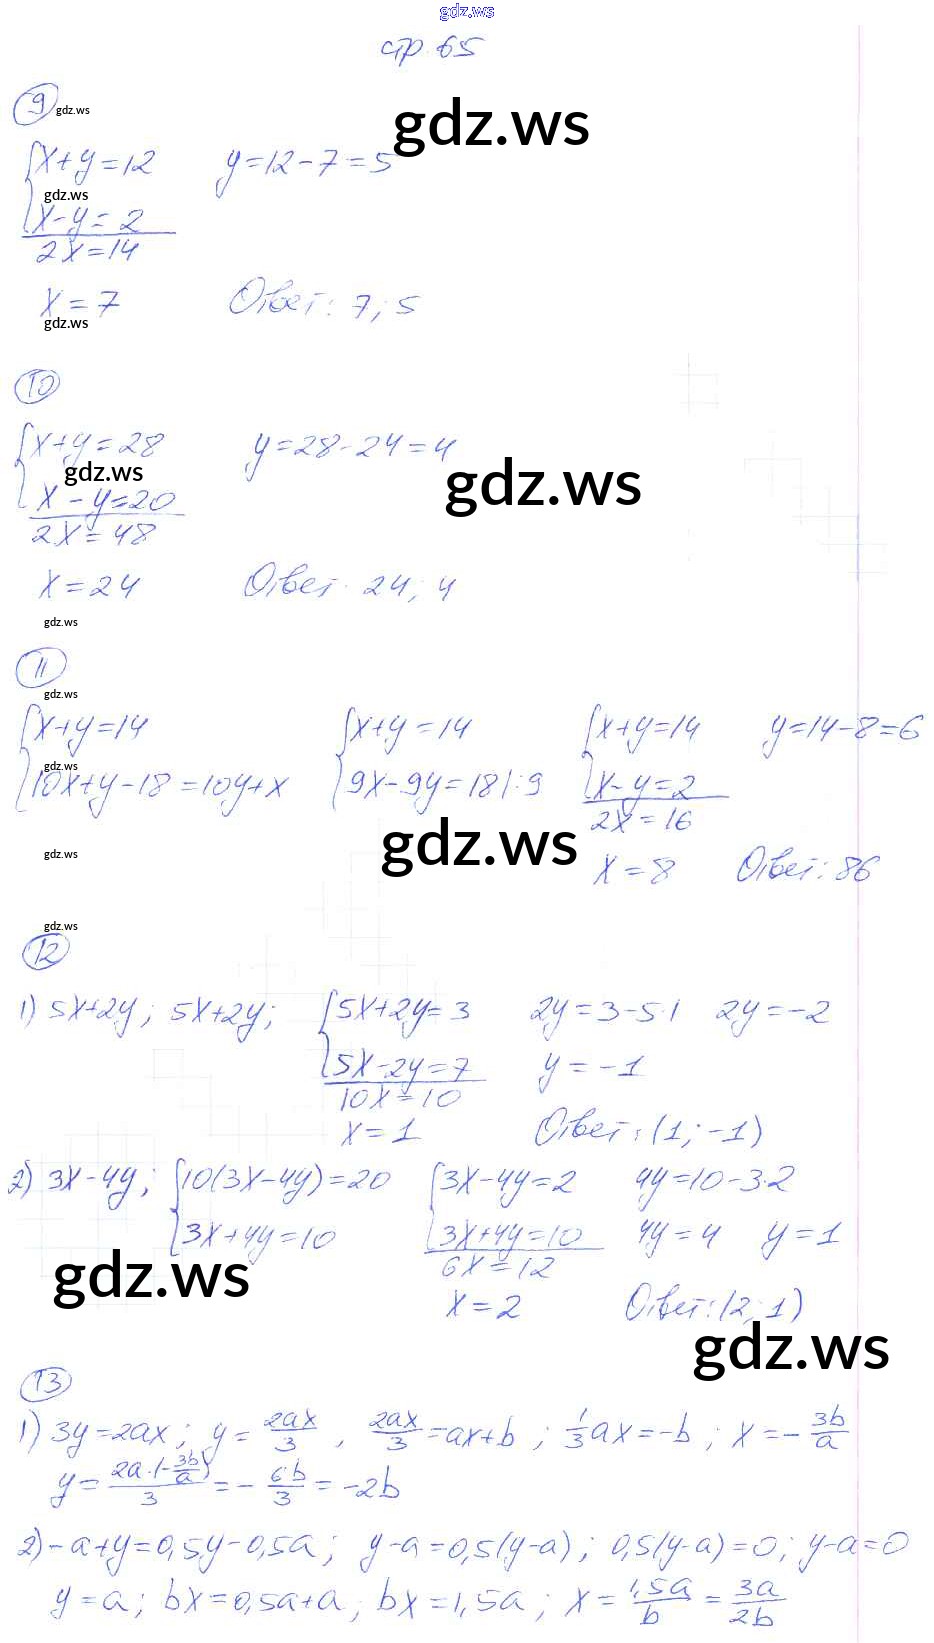 gdz.ws
стр. 65
9 gdz.ws
gdz.ws
x+y=12 y=12-7=5
gdz.ws
x-y=2
2x=14
x=7 Ответ: 7; 5
gdz.ws
10
x+y=28 y=28-24=4
gdz.ws gdz.ws
x-y=20
2x=48
x=24 Ответ: 24; 4
gdz.ws
11
gdz.ws
x+y=14 x+y=14 x+y=14 y=14-8=6
gdz.ws
10x+y-18=10y+x 9x-9y=18|:9 x-y=2
2x=16
gdz.ws
gdz.ws x=8 Ответ: 86
gdz.ws
12
1) 5x+2y; 5x+2y; 5x+2y=3 2y=3-5·1 2y=-2
5x-2y=7 y=-1
10x=10
x=1 Ответ: (1; -1)
2) 3x-4y; 10(3x-4y)=20 3x-4y=2 4y=10-3·2
3x+4y=10 3x+4y=10 4y=4 y=1
gdz.ws 6x=12
x=2 Ответ: (2; 1)
gdz.ws
13
1) 3y=2ax; y=2ax/3, 2ax/3=ax+b; 1/3ax=-b; x=-3b/a
y=2a·(-3b/a)/3=-6b/3=-2b
2) -a+y=0,5y-0,5a; y-a=0,5(y-a); 0,5(y-a)=0; y-a=0
y=a; bx=0,5a+a; bx=1,5a; x=1,5a/b=3a/2b